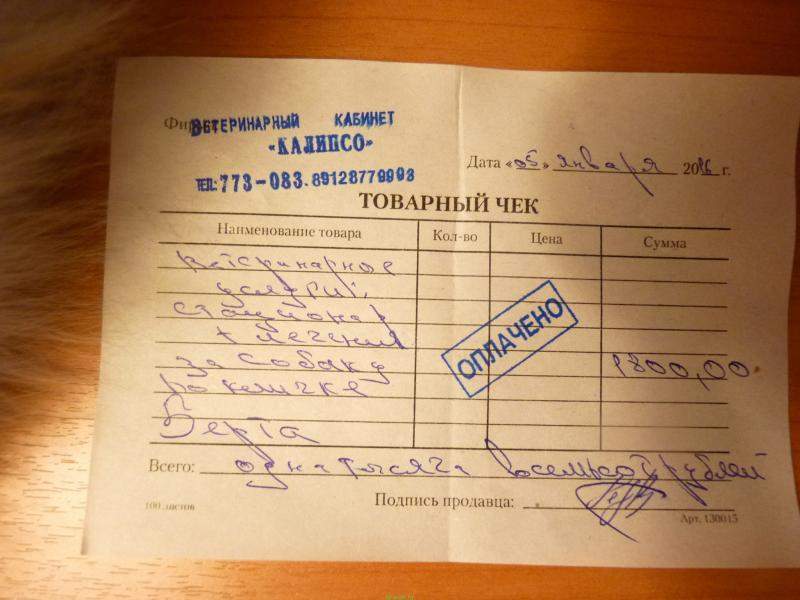 Фирма ВЕТЕРИНАРНЫЙ КАБИНЕТ
«КАЛИПСО»
ТЕЛ: 773-083. 89128779993
Дата «05» января 2016 г.
ТОВАРНЫЙ ЧЕК
Наименование товара Кол-во Цена Сумма
ветеринарные
услуги,
стационар
+ лечение
за собаку 1800,00
по кличке
Берта
ОПЛАЧЕНО
Всего: одна тысяча восемьсот рублей
Подпись продавца:
100 листов
Арт. 130015